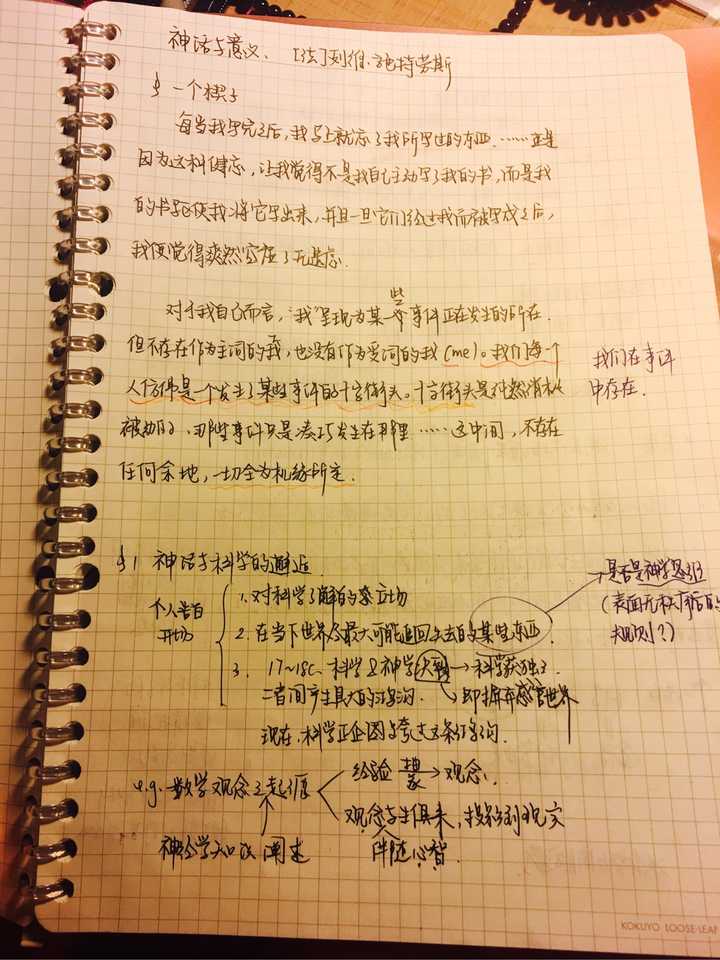 神话与意义、[法]列维·施特劳斯
§ 一个楔子
每当我写完之后，我马上就忘了我所写过的东西……正是
因为这种健忘，让我觉得不是我自己主动写了我的书，而是我
的书驱使我将它写出来，并且一旦它们经过我而被写成之后，
我便觉得爽然空座了无遗忘.
对于我自己而言，"我"呈现为某一些事件正在发生的所在.
但不存在作为主词的我，也没有作为受词的我(me)。我们每一个
人仿佛是一个发生了某些事件的十字街头。十字街头是纯然消极
被动的、那些事件只是凑巧发生在那里……这中间，不存在
任何余地，一切全为机缘所定.
我们在事件
中存在.
§1 神话与科学的邂逅
个人告白
开场
1. 对科学了解的 立场
2. 在当下世界尽最大可能追回失去的某些东西.
是否是神学思维
(表面无秩序后的
规则?)
3. 17~18C、科学&神学决裂→科学获独立
二者间产生具大的鸿沟. 即摒弃感官世界
现在，科学正企图 跨过这条鸿沟.
e.g. 数学观念之起源
经验 抽象→观念.
观念与生俱来，投影到现实
神经学知识阐述
伴随心智.
KOKUYO LOOSE-LEAF